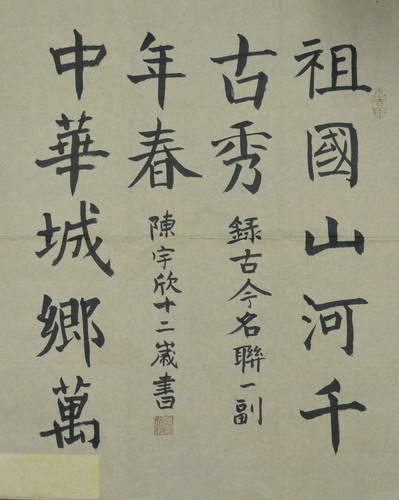 祖國山河千
古秀
中華城鄉萬
年春
録古今名聯一副
陳宇欣十二歲書